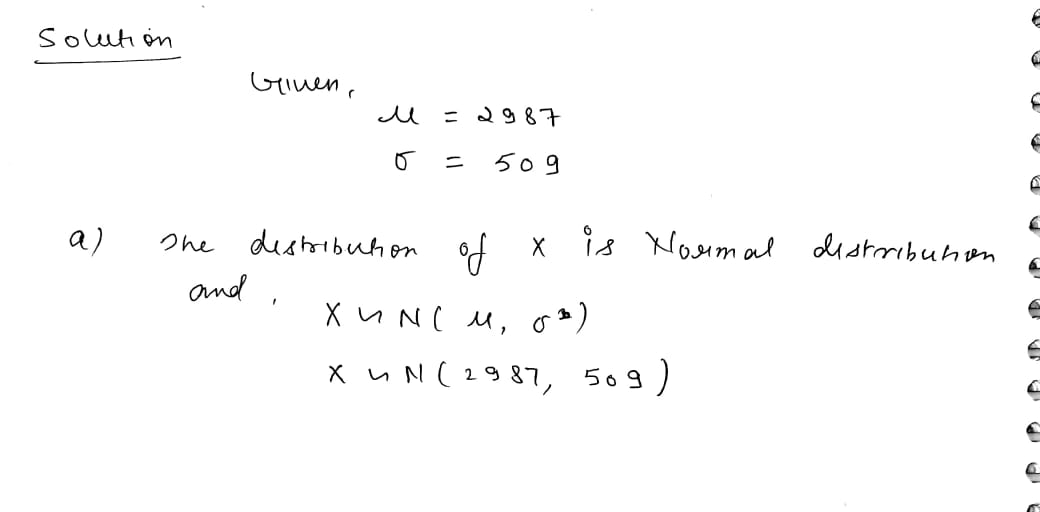 Solution
Given,
μ = 2987
σ = 509
a) The distribution of X is Normal distribution
and,
X ~ N( μ, σ²)
X ~ N( 2987, 509 )